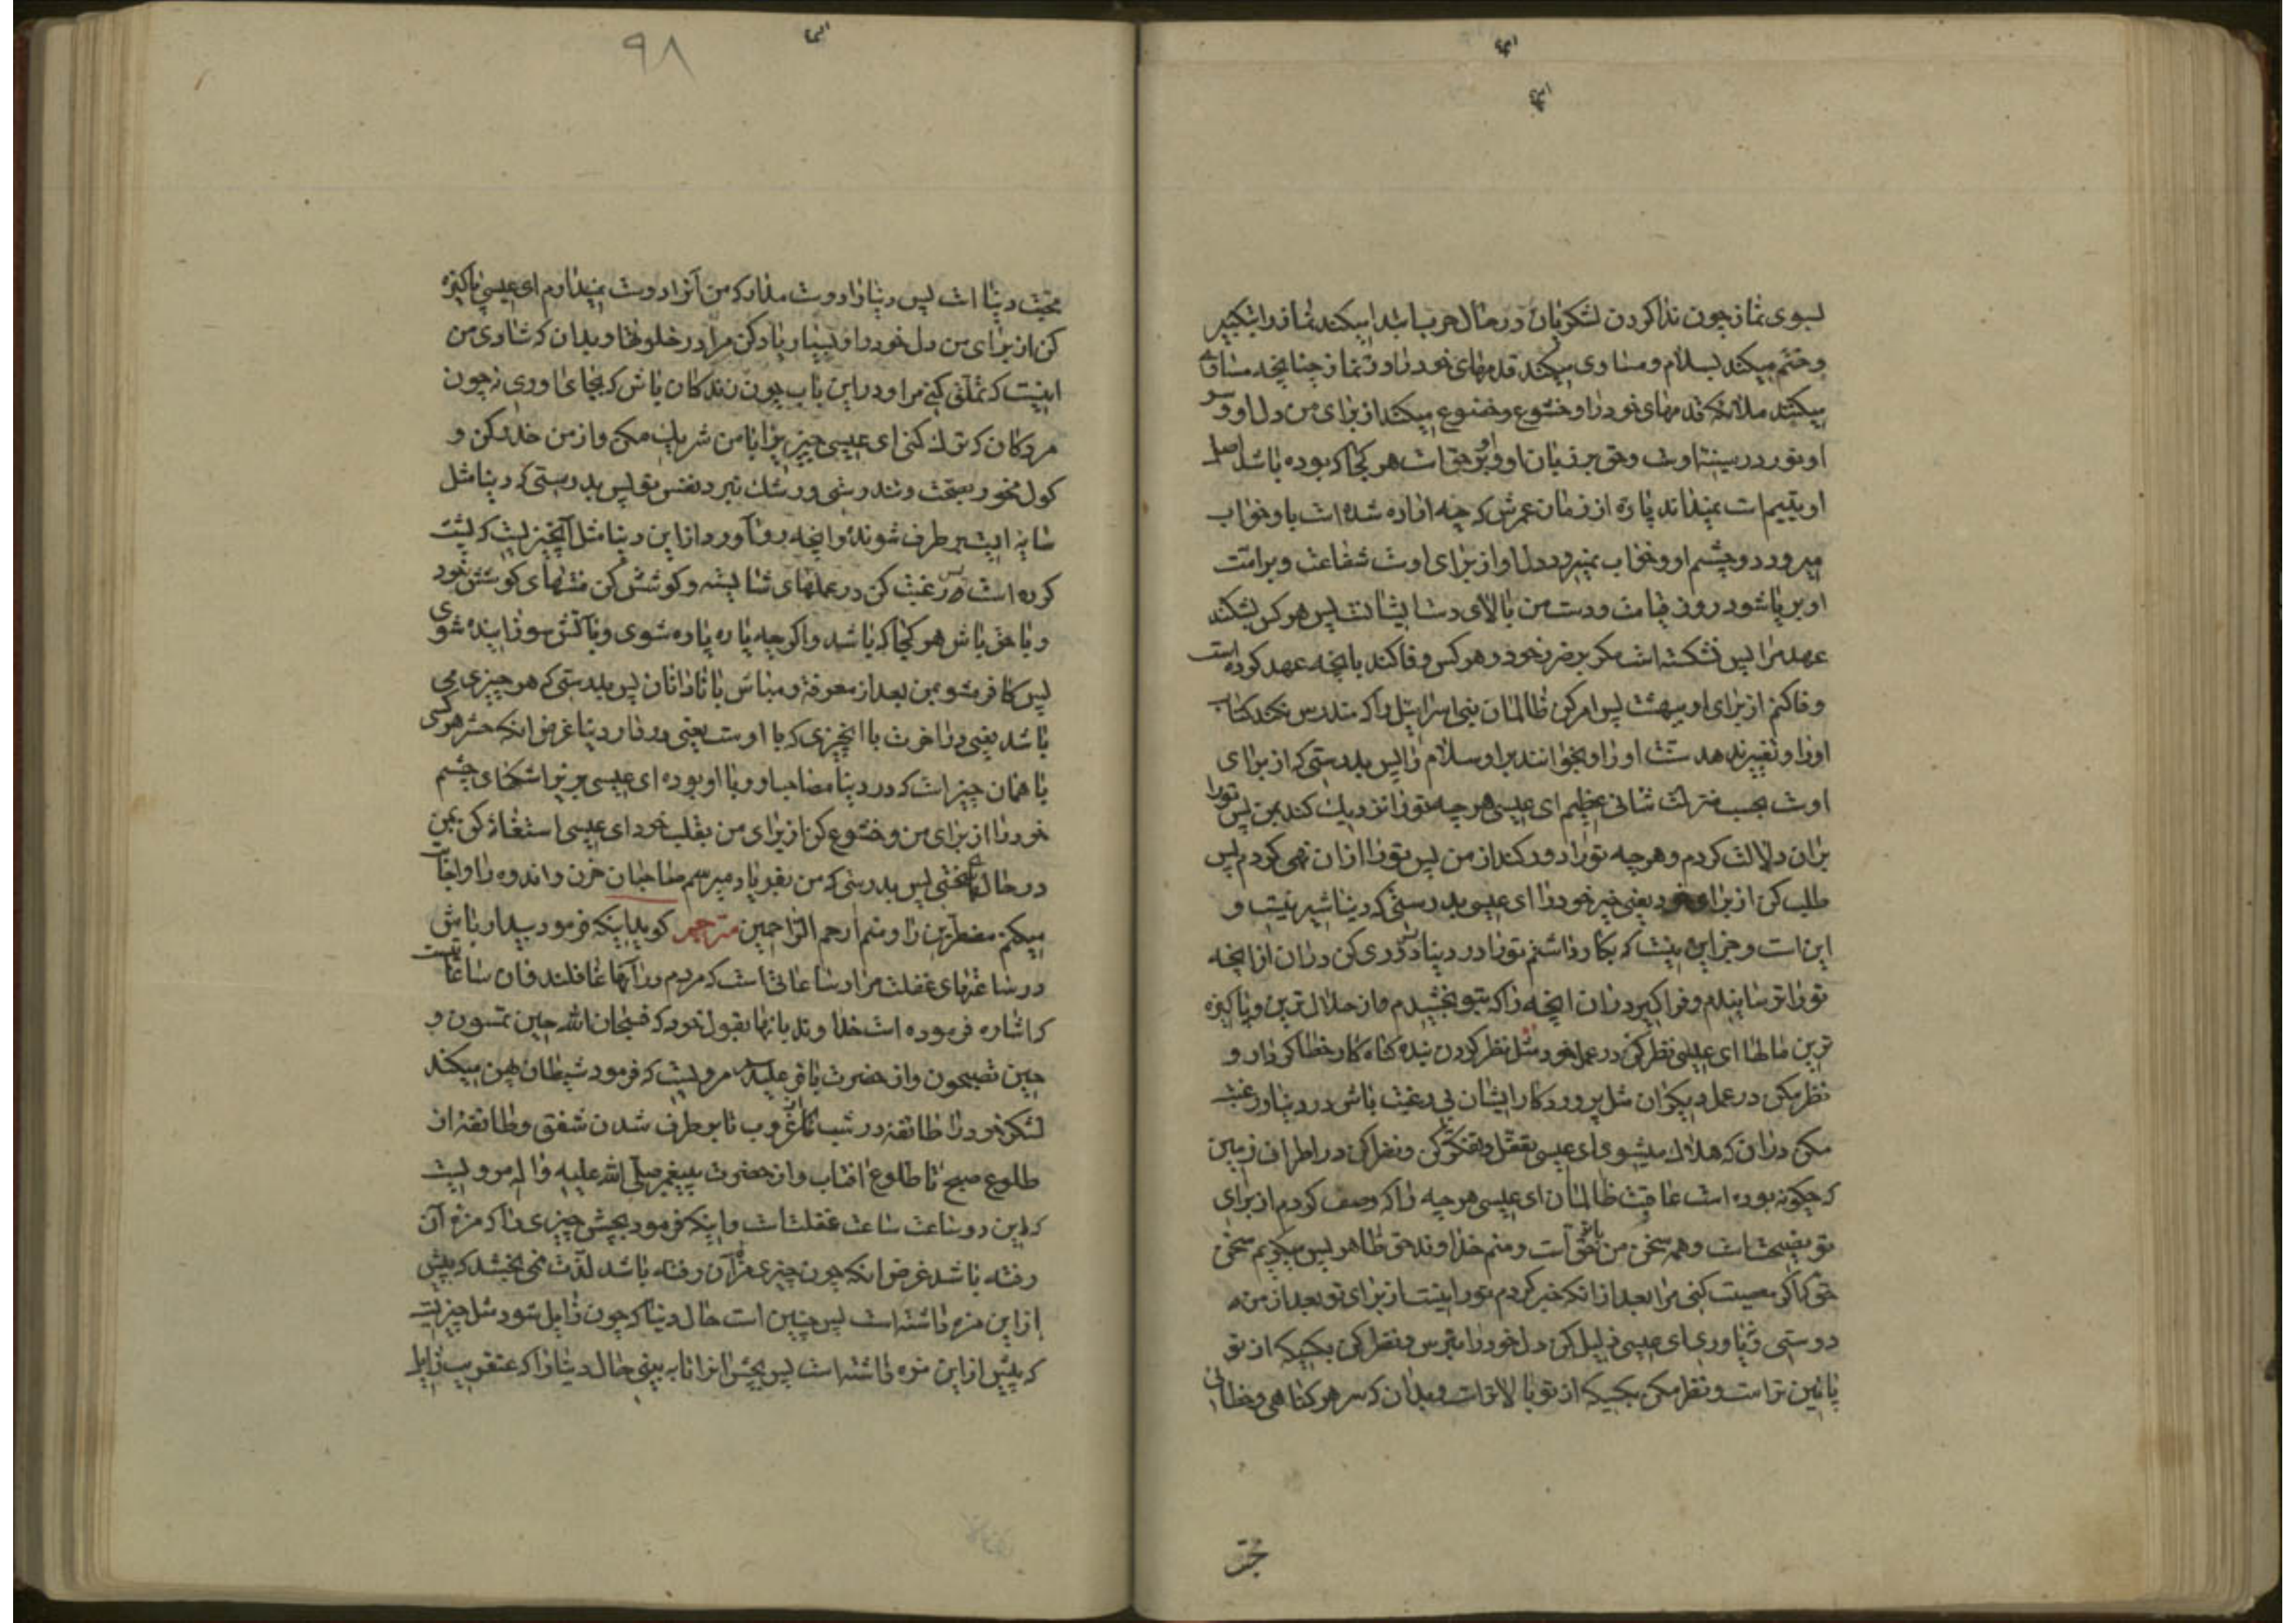 بسوی نماز چون ندا کردن لشکریان در حال حرب ابتدا میکند نماز را بتکبیر
و ختم میکند بسلام و مساوی میکند قدمهای خود را در نماز چنانچه مساوی
میکنند ملائکه قدمهای خود را و خشوع و خضوع میکند از برای من دل او و سر
او نور در سینه اوست و حق بر زبان او و او بر حق است هر کجا که بوده باشد اصل
او یتیم است نمیداند پاره از زمان عمرش که چه اراده شده است باو خواب
میرود دو چشم او و خواب نمیرود دل او از برای اوست شفاعت و بر امت
او بر پا شود روز قیامت و دست من بالای دستها ایشانست پس هر کس بشکند
عهد مرا پس نشکسته است مگر بر ضرر خود و هر کس وفا کند بانچه عهد کرده است
وفا کنم از برای او ببهشت پس امر کن ظالمان بنی اسرائیل را که مندرس نکنند کتاب
او را و تغییر ندهند سنت او را و بخوانند بر او سلام را پس بدرستی که از برای
اوست بحسب منزلت شانی عظیم ای عیسی هر چه تو را نزدیک کند بمن پس تو را
بران دلالت کردم و هر چه تو را دور کند از من پس تو را از ان نهی کردم پس
طلب کن از برای خود یعنی خیر خود را ای عیسی بدرستی که دنیا شیرینیست و
این است و جز این نیست که بکار داشتم تو را در دنیا پس دوری کن دران از انچه
تو را ترسانیدم و فرا گیر دران انچه را که بتو بخشیدم از حلال ترین و پاکیزه
ترین مالها ای عیسی نظر کن در عمل خود مثل نظر کردن بنده گناه کار خطا کردار و
نظر مکن در عمل دیگران مثل پروردگار ایشان بی رغبت باش در دنیا و رغبت
مکن دران که هلاک میشوی ای عیسی تعقل و تفکر کن و نظر کن در اطراف زمین
که چگونه بوده است عاقبت ظالمان ای عیسی هر چه را که وصف کردم از برای
تو نصیحت است و همه سخن من با تو حق است و منم خداوند حق ظاهر پس میگویم سخن
حق که اگر معصیت کنی مرا بعد از انکه خبر کردم تو را نیست از برای تو بعد از من
دوستی و یاوری ای عیسی ذلیل کن دل خود را بترس و نظر کن بکسیکه از تو
پائین تر است و نظر مکن بکسیکه از تو بالاتر است و بدان که سر هر گناهی و خطائی
۹۸
محبت دنیا است پس دنیا را دوست مدار که من آنرا دوست نمیدارم ای عیسی پاکیزه
کن از برای من دل خود را و بسیار یاد کن مرا در خلوتها و بدان که شادی من
اینست که تملق کنی مرا و در این باب چون زندگان باش که بجای اوری نه چون
مردگان که ترک کنی ای عیسی چیزیرا با من شریک مکن و از من حذر کن و
گول مخور بصحت و تندرستی و رشک نبرد نفس تو پس بدرستی که دنیا مثل
سایه ایست بر طرف شونده و انچه رو آورد از این دنیا مثل آنچیزیست که پشت
کرده است پس رغبت کن در عملهای شایسته و کوشش کن منتهای کوشش خود
و با حق باش هر کجا که باشد و اگر چه پاره پاره شوی و باتش سوزانیده شوی
پس کافر مشو بمن بعد از معرفة و مباش با نادانان پس بدرستی که هر چیزی می
باشد یعنی در اخرت با انچیزی که با اوست یعنی در دار دنیا غرض انکه حشر هر کسی
با همان چیز است که در دنیا مصاحب او و با او بوده ای عیسی بریز اشکهای چشم
خود را از برای من و خشوع کن از برای من بقلب خود ای عیسی استغاثه کن بمن
در حال سختی پس بدرستی که من بفریاد میرسم صاحبان حزن و اندوه را و اجابت
میکنم مضطرین را و منم ارحم الراحمین مترجم گوید اینکه فرمود بیدار باش
در ساعتهای غفلت مراد ساعاتی است که مردم در آنها غافلند و ان ساعاتیست
که اشاره فرموده است خداوند بانها بقول خود که فسبحان الله حین تمسون و
حین تصبحون و از حضرت باقر علیه السلام مرویست که فرمود شیطان پهن میکند
لشکر خود را طائفه در شب از غروب تا بر طرف شدن شفق و طائفه از
طلوع صبح تا طلوع افتاب و از حضرت پیغمبر صلی الله علیه و اله مرویست
که این دو ساعت ساعت غفلتست و اینکه فرمود بچش چیزی را که مزه آن
رفته باشد غرض انکه چون چیزی مزه آن رفته باشد لذت نمی بخشد که پیش
از این مزه داشته است پس چنین است حال دنیا که چون زایل شود مثل چیزیست
که پیش از این مزه داشته است پس بچش انرا تا به بینی حال دنیا را که عنقریب زایل